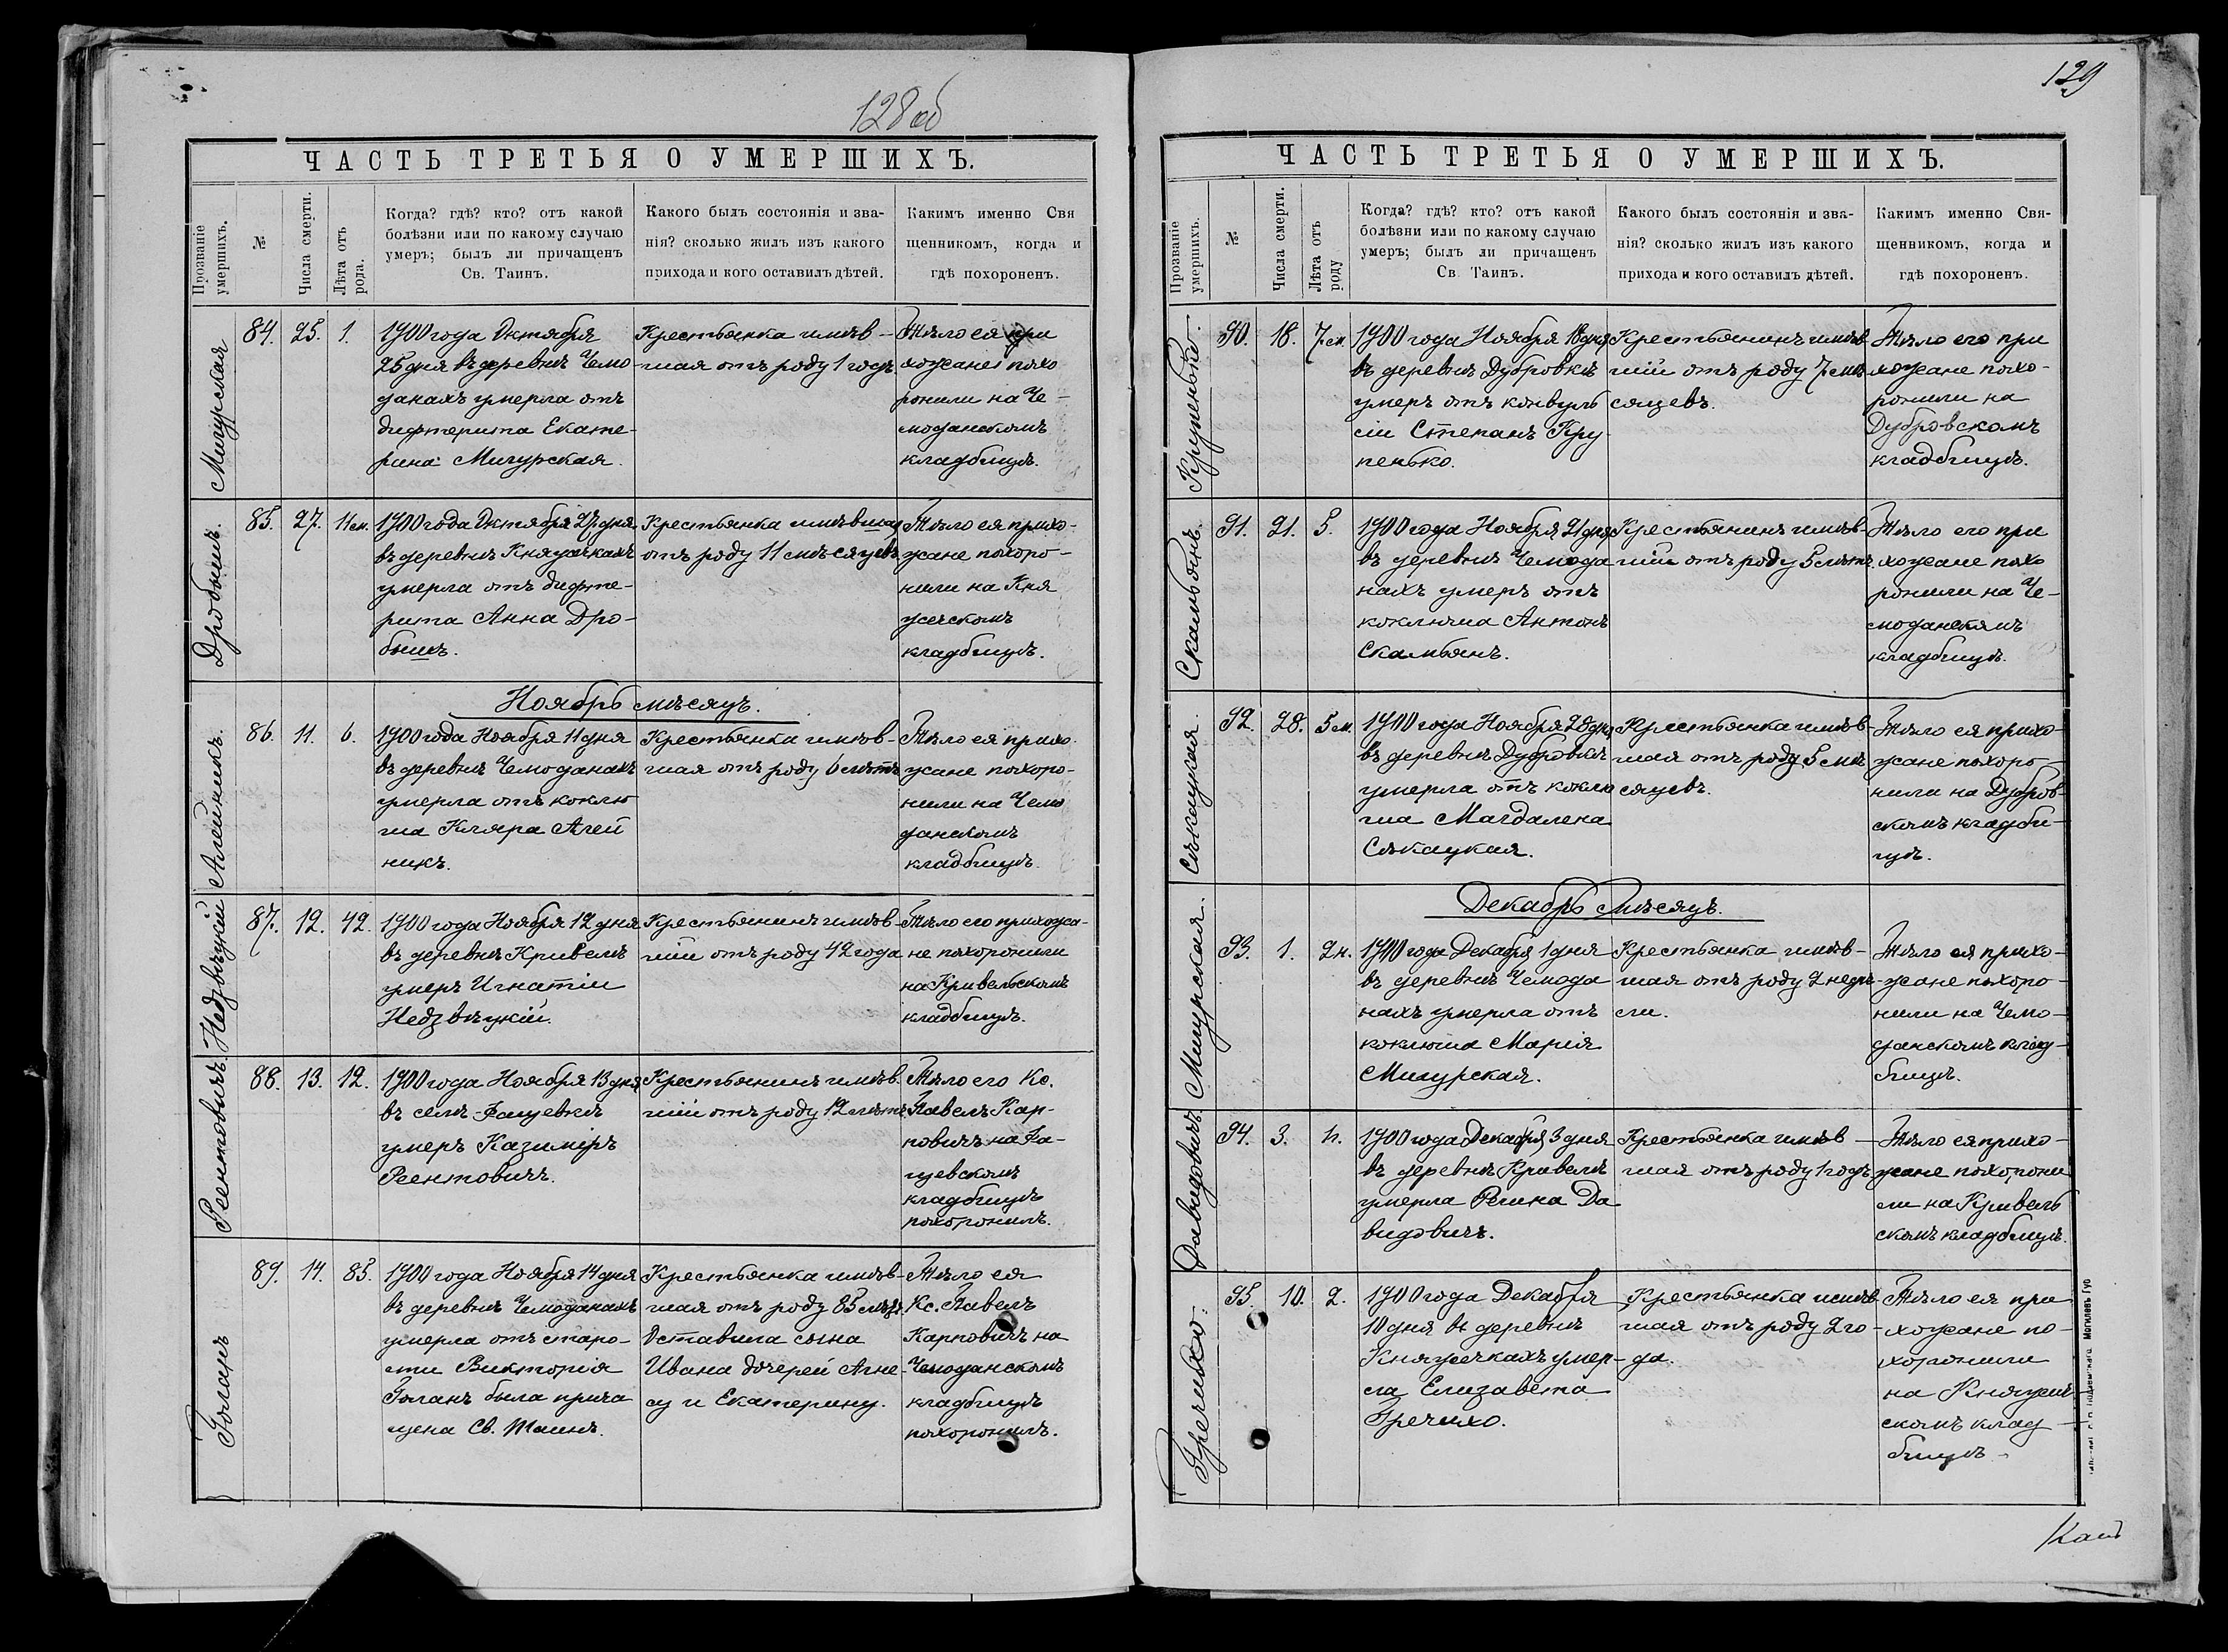 128 об
ЧАСТЬ ТРЕТЬЯ О УМЕРШИХЪ.
Прозваніе умершихъ.
№
Числа смерти.
Лѣта отъ рода.
Когда? гдѣ? кто? отъ какой
болѣзни или по какому случаю
умеръ; былъ ли причащенъ
Св. Таинъ.
Какого былъ состоянія и зва-
нія? сколько жилъ изъ какого
прихода и кого оставилъ дѣтей.
Какимъ именно Свя
щенникомъ, когда и
гдѣ похороненъ.
Мигурская
84. 25. 1.
1900 года Октября
25 дня въ деревнѣ Чемо-
данахъ умерла отъ
дифтерита Екате-
рина Мигурская.
Крестьянка имѣв-
шая отъ роду 1 годъ
Тѣло ея при
хожане похо
ронили на Че-
моданскомъ
кладбищѣ.
Дробышъ.
85. 27. 11 м.
1900 года Октября 27 дня
въ деревнѣ Княжичкахъ
умерла отъ дифте-
рита Анна Дро-
бышъ.
Крестьянка имѣвшая
отъ роду 11 мѣсяцевъ
Тѣло ея прихо-
жане похоро-
нили на Кня
жечскомъ
кладбищѣ.
Ноябрь мѣсяцъ.
Алейникъ.
86. 11. 6.
1900 года Ноября 11 дня
въ деревнѣ Чемоданахъ
умерла отъ коклю
ша Кляра Алей
никъ.
Крестьянка имѣв-
шая отъ роду 6 лѣтъ
Тѣло ея прихо
жане похоро-
нили на Чемо
данскомъ
кладбищѣ.
Недзвѣцкій
87. 12. 42.
1900 года Ноября 12 дня
въ деревнѣ Кривелѣ
умеръ Игнатій
Недзвѣцкій.
Крестьянинъ имѣв-
шій отъ роду 42 года
Тѣло его прихожа-
не похоронили
на Кривельскомъ
кладбищѣ.
Реентовичъ.
88. 13. 12.
1900 года Ноября 13 дня
въ селѣ Фащевкѣ
умеръ Казиміръ
Реентовичъ.
Крестьянинъ имѣв.
шій отъ роду 12 лѣтъ
Тѣло его Кс.
Павелъ Кар-
повичъ на Фа-
щевскомъ
кладбищѣ
похоронилъ.
Голанъ
89. 14. 85.
1900 года Ноября 14 дня
въ деревнѣ Чемоданахъ
умерла отъ старо-
сти Викторія
Голанъ была прича
щена Св. Таинъ.
Крестьянка имѣв-
шая отъ роду 85 лѣтъ
Оставила сына
Ивана дочерей Агне-
су и Екатерину.
Тѣло ея
Кс. Павелъ
Карповичъ на
Чемоданскомъ
кладбищѣ
похоронилъ.
129
ЧАСТЬ ТРЕТЬЯ О УМЕРШИХЪ.
Прозваніе умершихъ.
№
Числа смерти.
Лѣта отъ роду
Когда? гдѣ? кто? отъ какой
болѣзни или по какому случаю
умеръ; былъ ли причащенъ
Св Таинъ.
Какого былъ состоянія и зва-
нія? сколько жилъ изъ какого
прихода и кого оставилъ дѣтей.
Какимъ именно Свя-
щенникомъ, когда и
гдѣ похороненъ.
Крупенько.
90. 18. 7 м.
1900 года Ноября 18 дня
въ деревнѣ Дубровкѣ
умеръ отъ конвуль
сіи Степанъ Кру-
пенько.
Крестьянинъ имѣв
шій отъ роду 7 мѣ
сяцевъ.
Тѣло его при
хожане похо-
ронили на
Дубровскомъ
кладбищѣ.
Скамьянъ.
91. 21. 5.
1900 года Ноября 21 дня
въ деревнѣ Чемода
нахъ умеръ отъ
коклюша Антонъ
Скамьянъ.
Крестьянинъ имѣв-
шій отъ роду 5 лѣтъ
Тѣло его при
хожане похо
ронили на Че-
моданскомъ
кладбищѣ.
Сѣкацкая.
92. 28. 5 м.
1900 года Ноября 28 дня
въ деревнѣ Дубровкѣ
умерла отъ коклю
ша Магдалена
Сѣкацкая.
Крестьянка имѣв-
шая отъ роду 5 мѣ
сяцевъ.
Тѣло ея прихо-
жане похоро-
нили на Дубров-
скомъ кладби-
щѣ.
Декабрь мѣсяцъ.
Мигурская.
93. 1. 2 н.
1900 года Декабря 1 дня
въ деревнѣ Чемода
нахъ умерла отъ
коклюша Марія
Мигурская.
Крестьянка имѣв-
шая отъ роду 2 недѣ-
ли.
Тѣло ея прихо-
жане похоро-
нили на Чемо-
данскомъ клад-
бищѣ.
Давидовичъ.
94. 3. 1.
1900 года Декабря 3 дня
въ деревнѣ Кривелѣ
умерла Регина Да
видовичъ.
Крестьянка имѣв-
шая отъ роду 1 годъ
Тѣло ея прихо-
жане похорони
ли на Кривель
скомъ кладбищѣ.
Гречихо.
95. 10. 2.
1900 года Декабря
10 дня въ деревнѣ
Княжечкахъ умер-
ла Елизавета
Гречихо.
Крестьянка имѣв
шая отъ роду 2 го-
да.
Тѣло ея при
хожане по-
хоронили
на Княжич-
скомъ клад-
бищѣ.
Могилевъ Губ